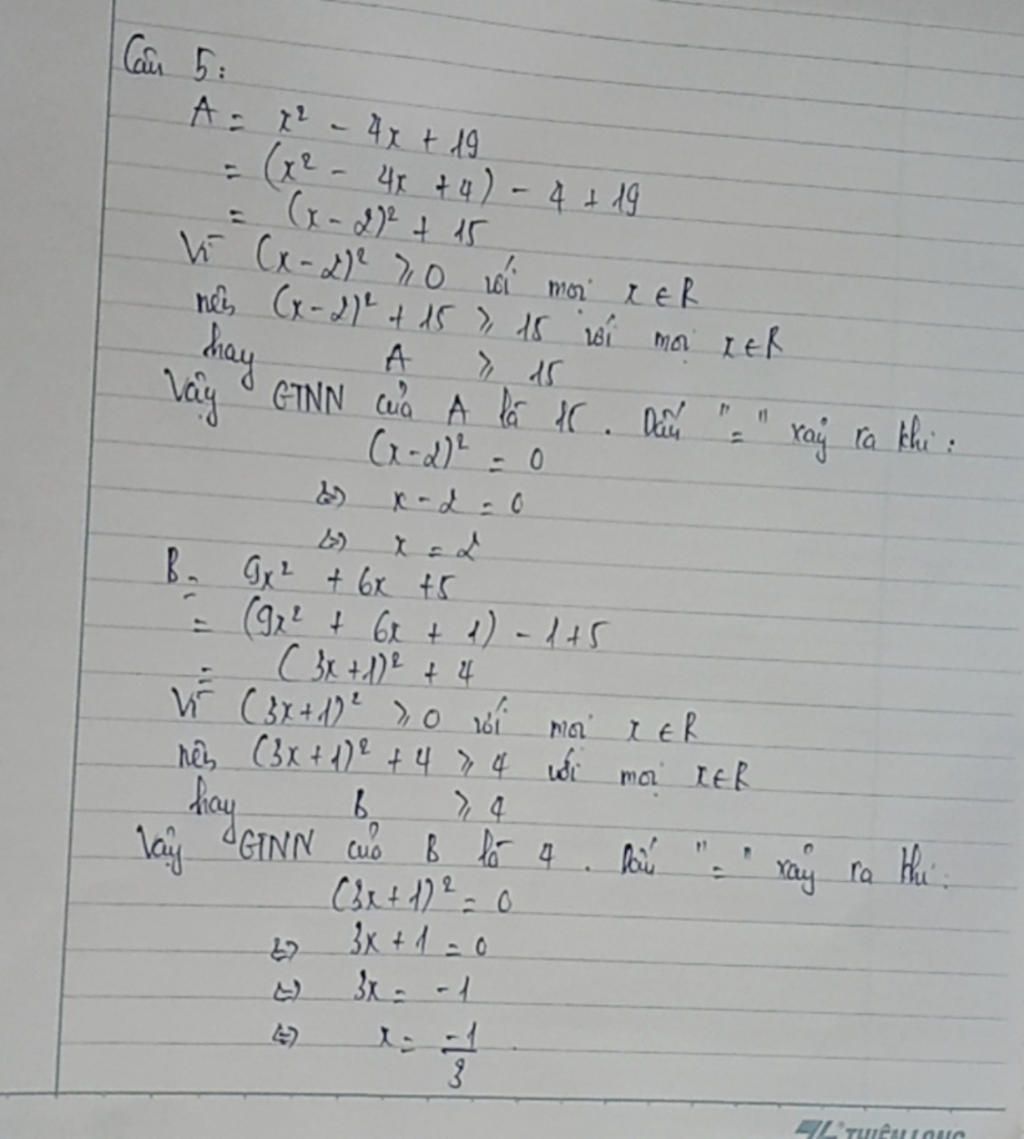 Câu 5:
A = x² - 4x + 19
= (x² - 4x + 4) - 4 + 19
= (x - 2)² + 15
Vì (x - 2)² ⩾ 0 với mọi x ∈ R
nên (x - 2)² + 15 ⩾ 15 với mọi x ∈ R
hay A ⩾ 15
Vậy GTNN của A là 15. Dấu "=" xảy ra khi:
(x - 2)² = 0
⇔ x - 2 = 0
⇔ x = 2
B = 9x² + 6x + 5
= (9x² + 6x + 1) - 1 + 5
= (3x + 1)² + 4
Vì (3x + 1)² ⩾ 0 với mọi x ∈ R
nên (3x + 1)² + 4 ⩾ 4 với mọi x ∈ R
hay B ⩾ 4
Vậy GTNN của B là 4. Dấu "=" xảy ra khi:
(3x + 1)² = 0
⇔ 3x + 1 = 0
⇔ 3x = -1
⇔ x = -1/3
THIÊN LONG